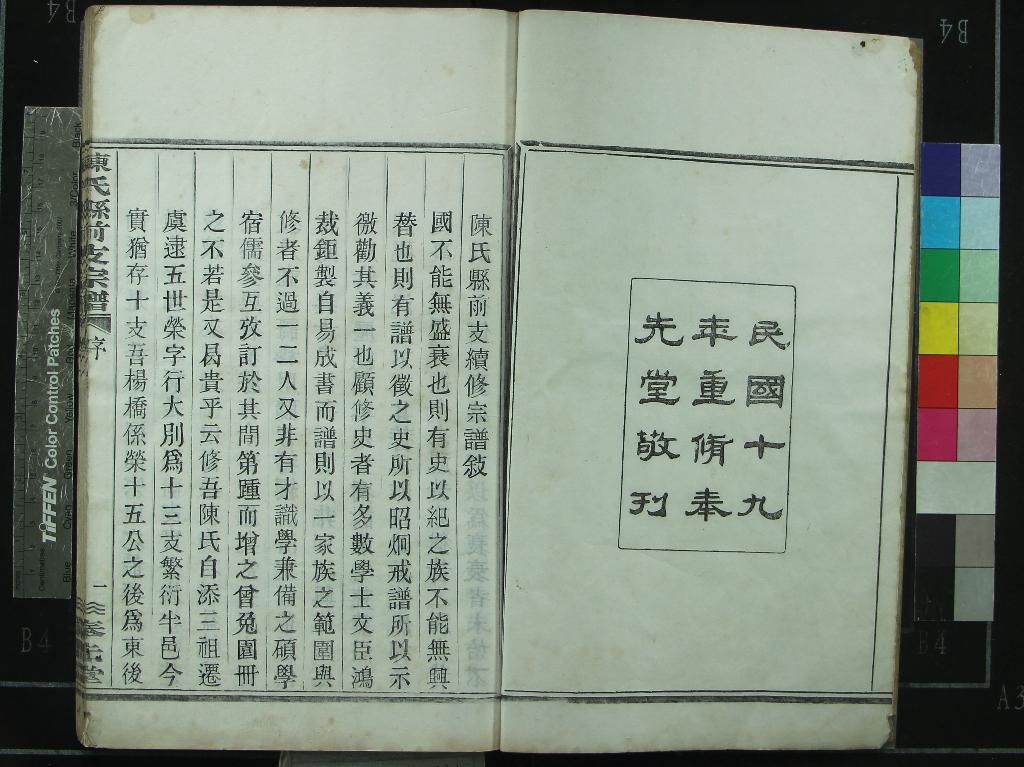 民國十九
年重脩奉
先堂敬刊
陳氏縣前支續修宗譜敘
國不能無盛衰也則有史以紀之族不能無興
替也則有譜以徵之史所以昭炯戒譜所以示
微勸其義一也顧修史者有多數學士文臣鴻
裁鉅製自易成書而譜則以一家族之範圍與
修者不過一二人又非有才識學兼備之碩學
宿儒參互攷訂於其間第踵而增之曾兔園冊
之不若是又曷貴乎云修吾陳氏自添三祖遷
虞逮五世榮字行大別為十三支繁衍半邑今
實猶存十支吾楊橋係榮十五公之後為東後
陳氏縣前支宗譜
序
一
奉先堂
TIFFEN Color Control Patches
B4
B4
B4
A3